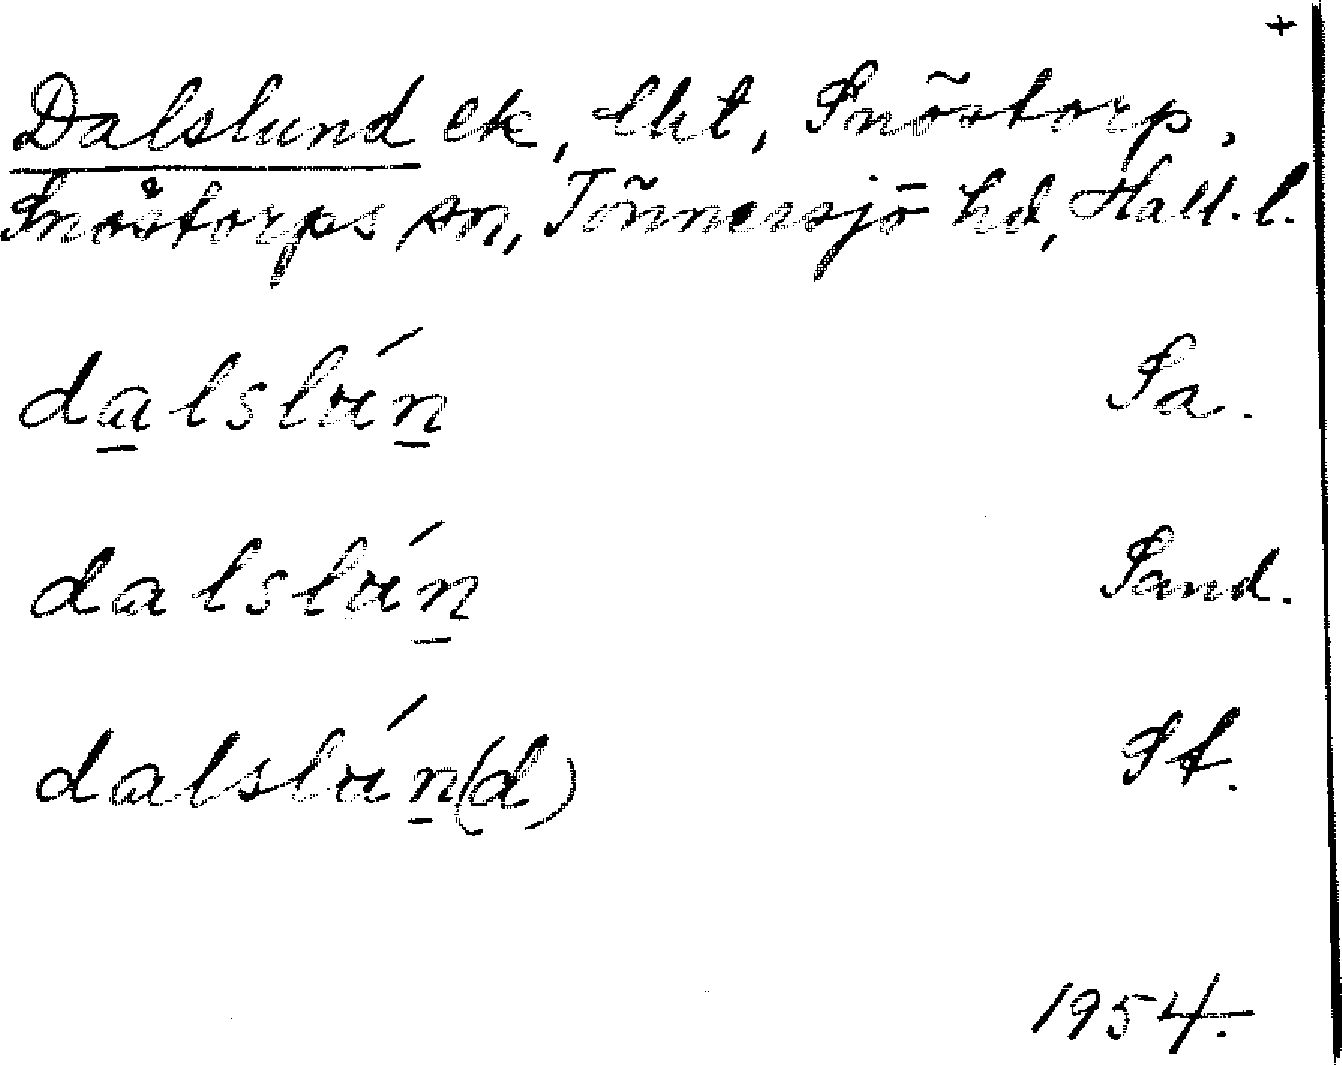 +
Dalslund ek, lht, Snöstorp,
Snöstorps sn, Tönnersjö hd, Hall. l.
dalslún Sa.
dalslún Sand.
dalslún(d) St.
1954.